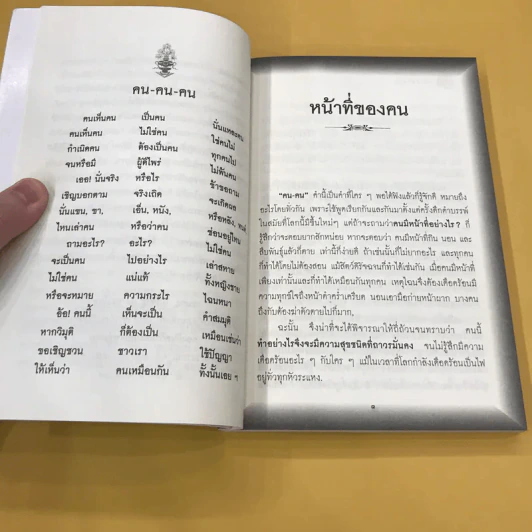 คน-คน-คน
คนเห็นคน เป็นคน นั่นแหละคน
คนเห็นคน ไม่ใช่คน ใช่คนไม่
กำเนิดคน ต้องเป็นคน ทุกคนไป
จนหรือมี ผู้ดีไพร่ ไม่พ้นคน
เออ! นั่นจริง หรือไร ข้าขอถาม
เชิญบอกตาม จริงเถิด จะเกิดผล
นั่นแขน, ขา, เอ็น, หนัง, หรือหลัง, พ้นซ่อน
ไหนเล่าคน หรือว่าคน ซ่อนอยู่ไหน
ถามอะไร? อะไร? ไม่ใช่คน
จะเป็นคน ไปอย่างไร เล่าสหาย
ไม่ใช่คน แน่แท้ ทั้งหญิงชาย
หรือจะหมาย ความกระไร ไฉนหนา
อ้อ! คนนี้ เห็นจะเป็น คำสมมุติ
หากวิมุติ ก็ต้องเป็น เหมือนเช่นว่า
ขอเชิญชวน ชาวเรา ใช้ปัญญา
ให้เห็นว่า คนเหมือนกัน ทั้งนั้นเอย ฯ
หน้าที่ของคน
"คน-คน" คำนี้เป็นคำที่ใคร ๆ พอได้ฟังแล้วก็รู้จักดี หมายถึง
อะไรโดยทั่วกัน เพราะใช้พูดเรียกกันและกันมาตั้งแต่ครั้งดึกดำบรรพ์
ในสมัยที่โลกนี้มีขึ้นใหม่ๆ แต่ถ้าจะถามว่าคนมีหน้าที่อย่างไร? ก็
รู้สึกว่าจะตอบยากสักหน่อย หากจะตอบว่า คนมีหน้าที่กิน นอน และ
สืบพันธุ์แล้วก็ตาย เท่านี้ก็ง่ายดี ถ้าเช่นนั้นก็ไม่ยากอะไร และทุกคน
ก็ทำได้โดยไม่ต้องสอน แม้สัตว์ดิรัจฉานก็ทำได้เช่นกัน เมื่อคนมีหน้าที่
เพียงเท่านั้นและก็ทำได้เหมือนกันทุกคน เหตุไฉนจึงต้องเดือดร้อนมี
ความทุกข์ใจถึงหน้าดำคร่ำเครียด นอนเอามือก่ายหน้าผาก บางคน
ถึงกับต้องฆ่าตัวตายไปก็มาก.
ฉะนั้น จึงน่าที่จะได้พิจารณาให้ถี่ถ้วนจนทราบว่า คนนี้
ทำอย่างไรจึงจะมีความสุขชนิดที่ถาวรมั่นคง จนไม่รู้สึกมีความ
เดือดร้อนอะไร ๆ กับใคร ๆ แม้ในเวลาที่โลกกำลังเดือดร้อนเป็นไฟ
อยู่ทั่วทุกหัวระแหง.